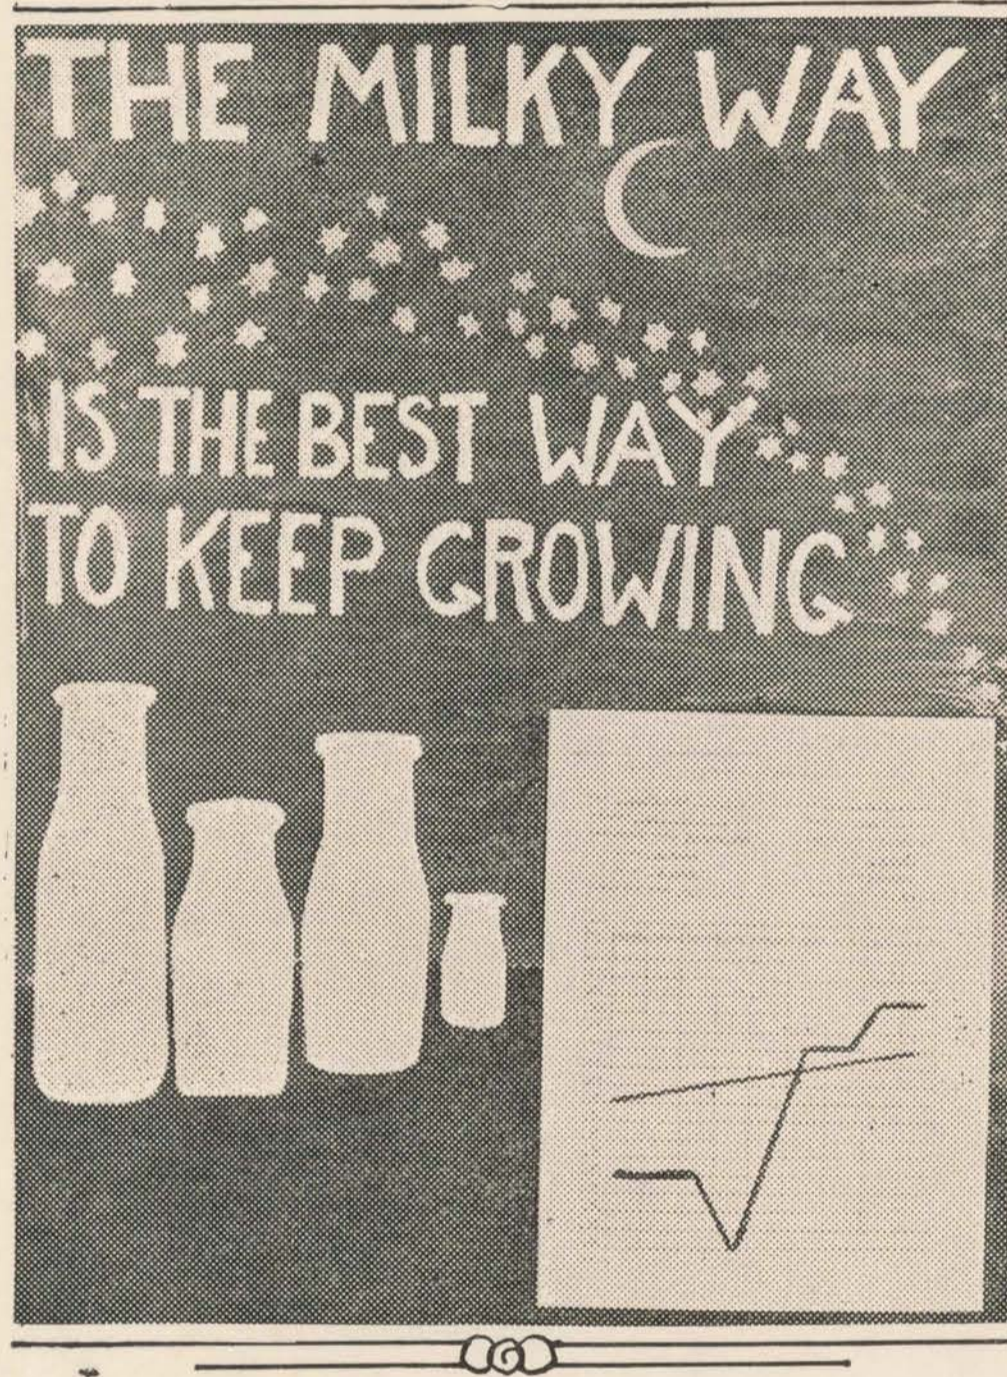 THE MILKY WAY
IS THE BEST WAY
TO KEEP GROWING